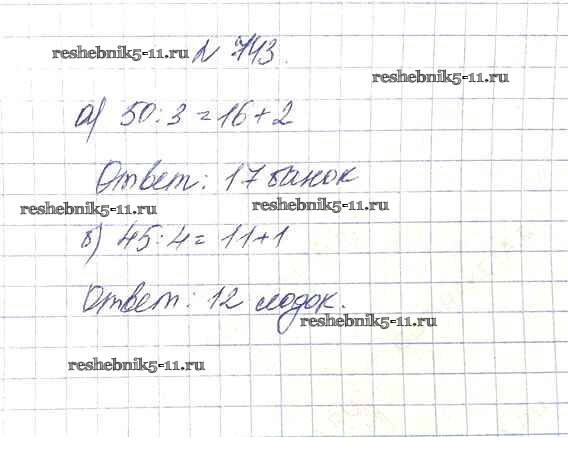 reshebnik5-11.ru № 743.
reshebnik5-11.ru
а) 50:3 = 16+2
Ответ: 17 банок
reshebnik5-11.ru reshebnik5-11.ru
б) 45:4 = 11+1
Ответ: 12 лодок.
reshebnik5-11.ru
reshebnik5-11.ru